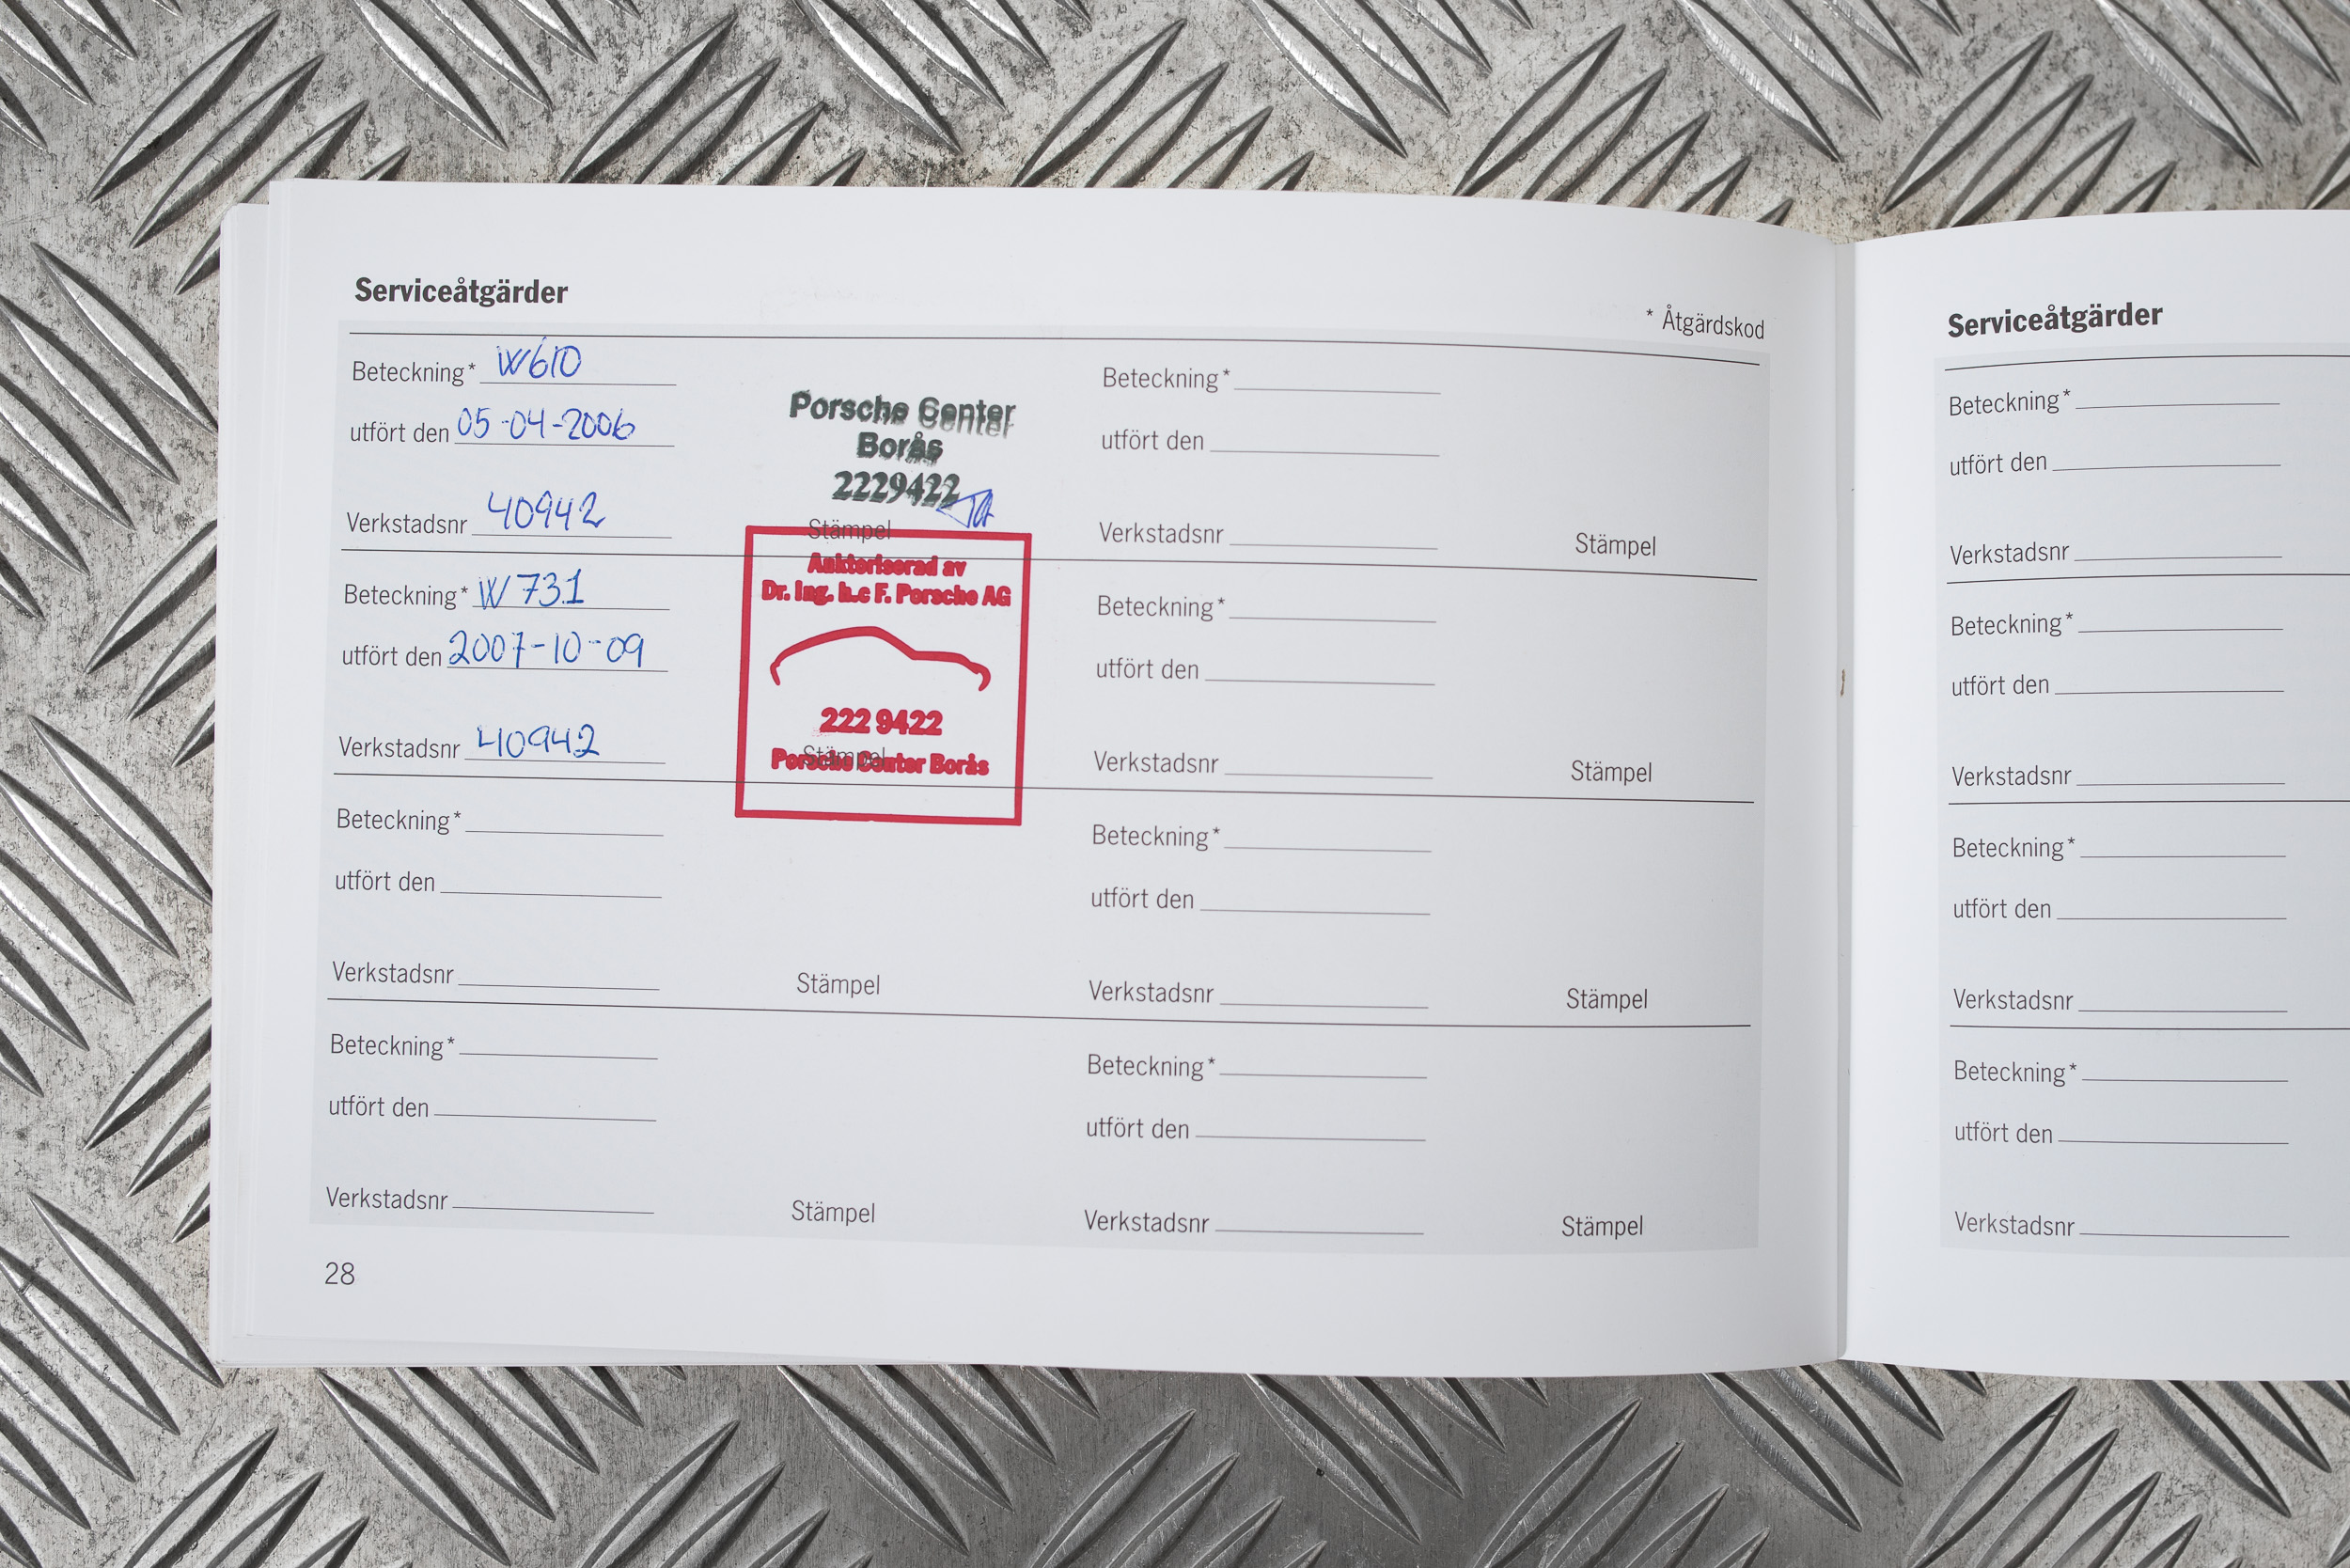 Serviceåtgärder
* Åtgärdskod
Beteckning* W610
utfört den 05-04-2006
Verkstadsnr 40942
Porsche Center
Borås
2229422
Stämpel
Beteckning*
utfört den
Verkstadsnr
Stämpel
Beteckning* W731
utfört den 2007-10-09
Verkstadsnr 40942
Auktoriserad av
Dr. Ing. h.c F. Porsche AG
222 9422
Stämpel
Porsche Center Borås
Beteckning*
utfört den
Verkstadsnr
Stämpel
Beteckning*
utfört den
Verkstadsnr
Stämpel
Beteckning*
utfört den
Verkstadsnr
Stämpel
Beteckning*
utfört den
Verkstadsnr
Stämpel
Beteckning*
utfört den
Verkstadsnr
Stämpel
28
Serviceåtgärder
Beteckning*
utfört den
Verkstadsnr
Beteckning*
utfört den
Verkstadsnr
Beteckning*
utfört den
Verkstadsnr
Beteckning*
utfört den
Verkstadsnr